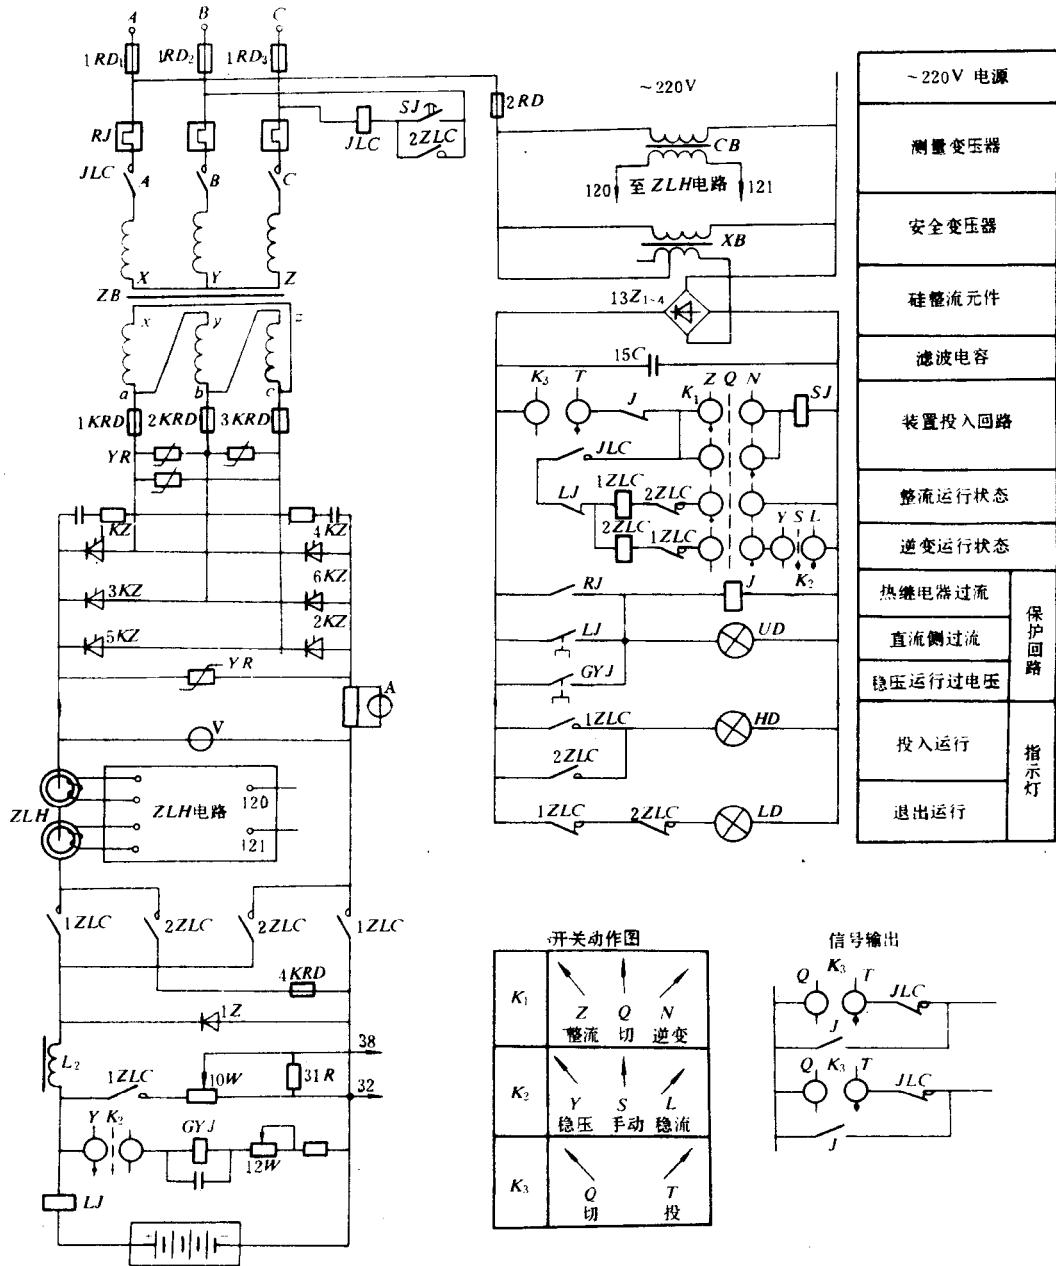 A B C
1RD₁ 1RD₂ 1RD₃
RJ
SJ
JLC
2ZLC
2RD
JLC A B C
X Y Z
ZB
x y z
a b c
1KRD 2KRD 3KRD
YR
1KZ 4KZ
3KZ 6KZ
5KZ 2KZ
YR
A
V
ZLH
ZLH电路
120
121
1ZLC 2ZLC 2ZLC 1ZLC
4KRD
1Z
L₂
38
1ZLC 10W 31R
32
Y K₂ GYJ
12W
LJ
+ −
~220V
CB
120 至ZLH电路 121
XB
13Z₁₋₄
15C
K₃ T J K₁ Z Q N SJ
JLC
LJ 1ZLC 2ZLC
2ZLC 1ZLC Y S L
K₂
RJ J
LJ UD
GYJ
1ZLC HD
2ZLC
1ZLC 2ZLC LD
~220V 电源
测量变压器
安全变压器
硅整流元件
滤波电容
装置投入回路
整流运行状态
逆变运行状态
热继电器过流
直流侧过流
稳压运行过电压
保护回路
投入运行
退出运行
指示灯
开关动作图
K₁
Z Q N
整流 切 逆变
K₂
Y S L
稳压 手动 稳流
K₃
Q T
切 投
信号输出
Q K₃ T JLC
J
Q K₃ T JLC
J